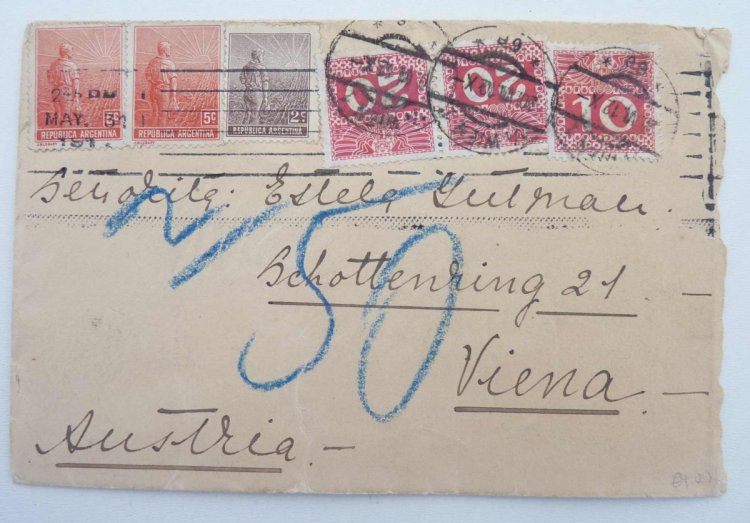 5c 5c 2c
REPUBLICA ARGENTINA REPUBLICA ARGENTINA REPUBLICA ARGENTINA
MAY.
20 20 10
WIEN
Señorita: Estela Gutman.
Schottenring 21 –
Viena –
Austria. –
50